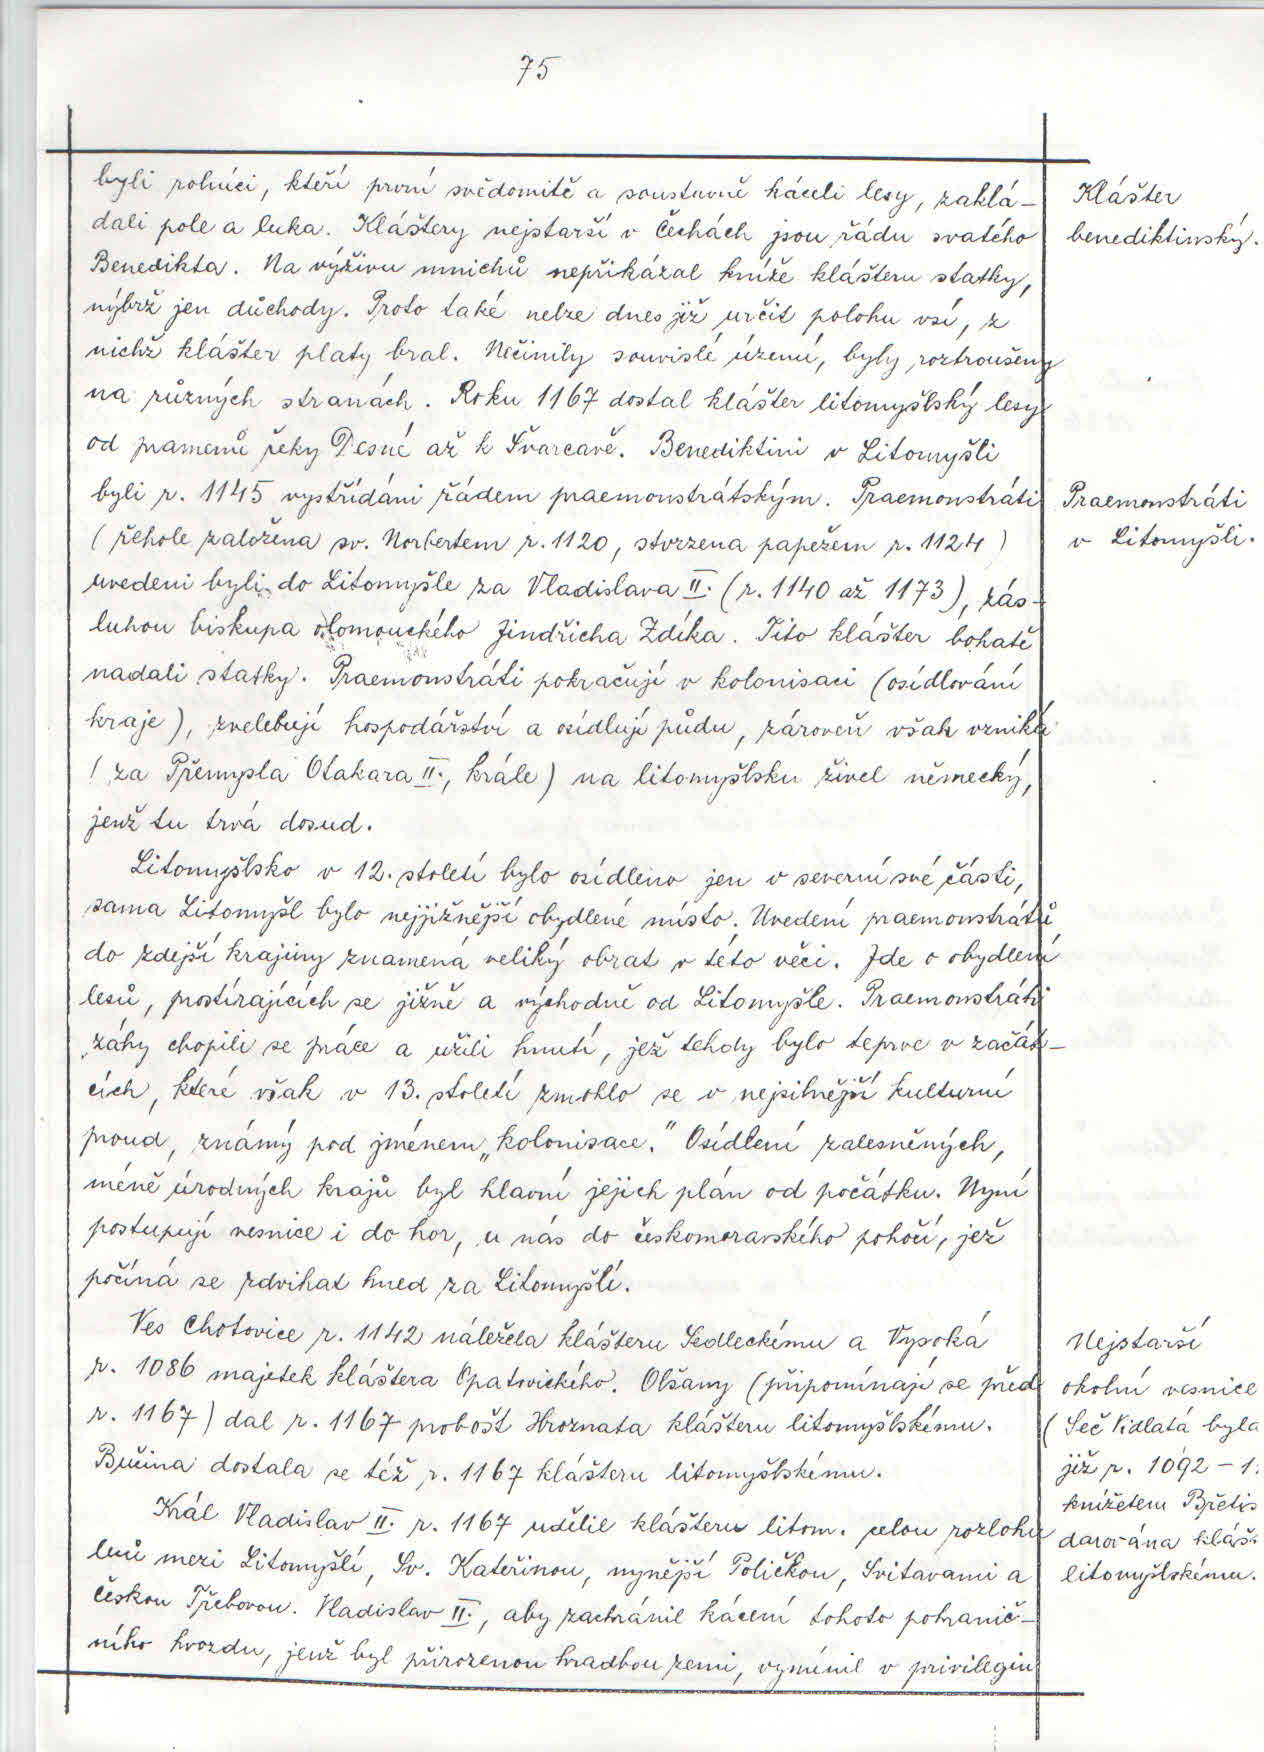 75
byli rolníci, kteří první svědomitě a soustavně káceli lesy, zaklá-
dali pole a luka. Kláštery nejstarší v Čechách jsou řádu svatého
Benedikta. Na výživu mnichů nepřikázal kníže klášteru statky,
nýbrž jen důchody. Proto také nelze dnes již určit polohu vsí, z
nichž klášter platy bral. Nečinily souvislé území, byly roztroušeny
na různých stranách. Roku 1167 dostal klášter litomyšlský lesy
od pramenů řeky Desné až k Švarcavě. Benediktini v Litomyšli
byli r. 1145 vystřídáni řádem praemonstrátským. Praemonstráti
(řehole založena sv. Norbertem r. 1120, stvrzena papežem r. 1124)
uvedeni byli do Litomyšle za Vladislava II. (r. 1140 až 1173), zás-
luhou biskupa olomouckého Jindřicha Zdíka. Tito klášter bohatě
nadali statky. Praemonstráti pokračují v kolonisaci (osídlování
kraje), zvelebují hospodářství a osídlují půdu, zároveň však vzniká
(za Přemysla Otakara II., krále) na litomyšlsku živel německý,
jenž tu trvá dosud.
Litomyšlsko v 12. století bylo osídleno jen v severní své části,
sama Litomyšl bylo nejjižnější obydlené místo. Uvedení praemonstrátů
do zdejší krajiny znamená veliký obrat v této věci. Jde o obydlení
lesů, prostírajících se jižně a východně od Litomyšle. Praemonstráti
záhy chopili se práce a užili hnutí, jež tehdy bylo teprve v začát-
cích, které však v 13. století zmohlo se v nejsilnější kulturní
proud, známý pod jménem „kolonisace." Osídlení zalesněných,
méně úrodných krajů byl hlavní jejich plán od počátku. Nyní
postupují vesnice i do hor, u nás do českomoravského pohoří, jež
počíná se zdvihat hned za Litomyšlí.
Ves Chotovice r. 1142 náležela klášteru Sedleckému a Vysoká
r. 1086 majetek kláštera Opatovického. Olšany (připomínají se před
r. 1167) dal r. 1167 probošt Hroznata klášteru litomyšlskému.
Bučina dostala se též r. 1167 klášteru litomyšlskému.
Král Vladislav II. r. 1167 udělil klášteru litom. celou rozlohu
lesů mezi Litomyšlí, Sv. Kateřinou, nynější Poličkou, Svitavami a
Českou Třebovou. Vladislav II., aby zachránil kácení tohoto pohranič-
ního hvozdu, jenž byl přirozenou hradbou zemi, vyměnil v privilegiu
Klášter
benediktinský.
Praemonstráti
v Litomyšli.
Nejstarší
okolní vesnice
(Seč Vidlatá byla
již r. 1092 - 1
knížetem Břetis
darována kláš
litomyšlskému.